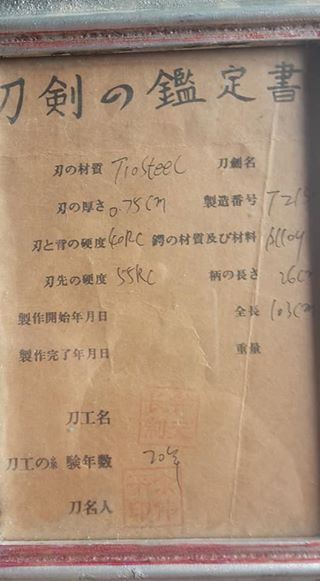 刀剣の鑑定書
刃の材質 T10Steel 刀劍名
刃の厚さ 0.75cm 製造番号
刃と背の硬度 40RC 鍔の材質及び材料 Alloy
刃先の硬度 55RC 柄の長さ 26cm
製作開始年月日 全長 103cm
製作完了年月日 重量
刀工名
刀工の経験年数 20年
刀名人